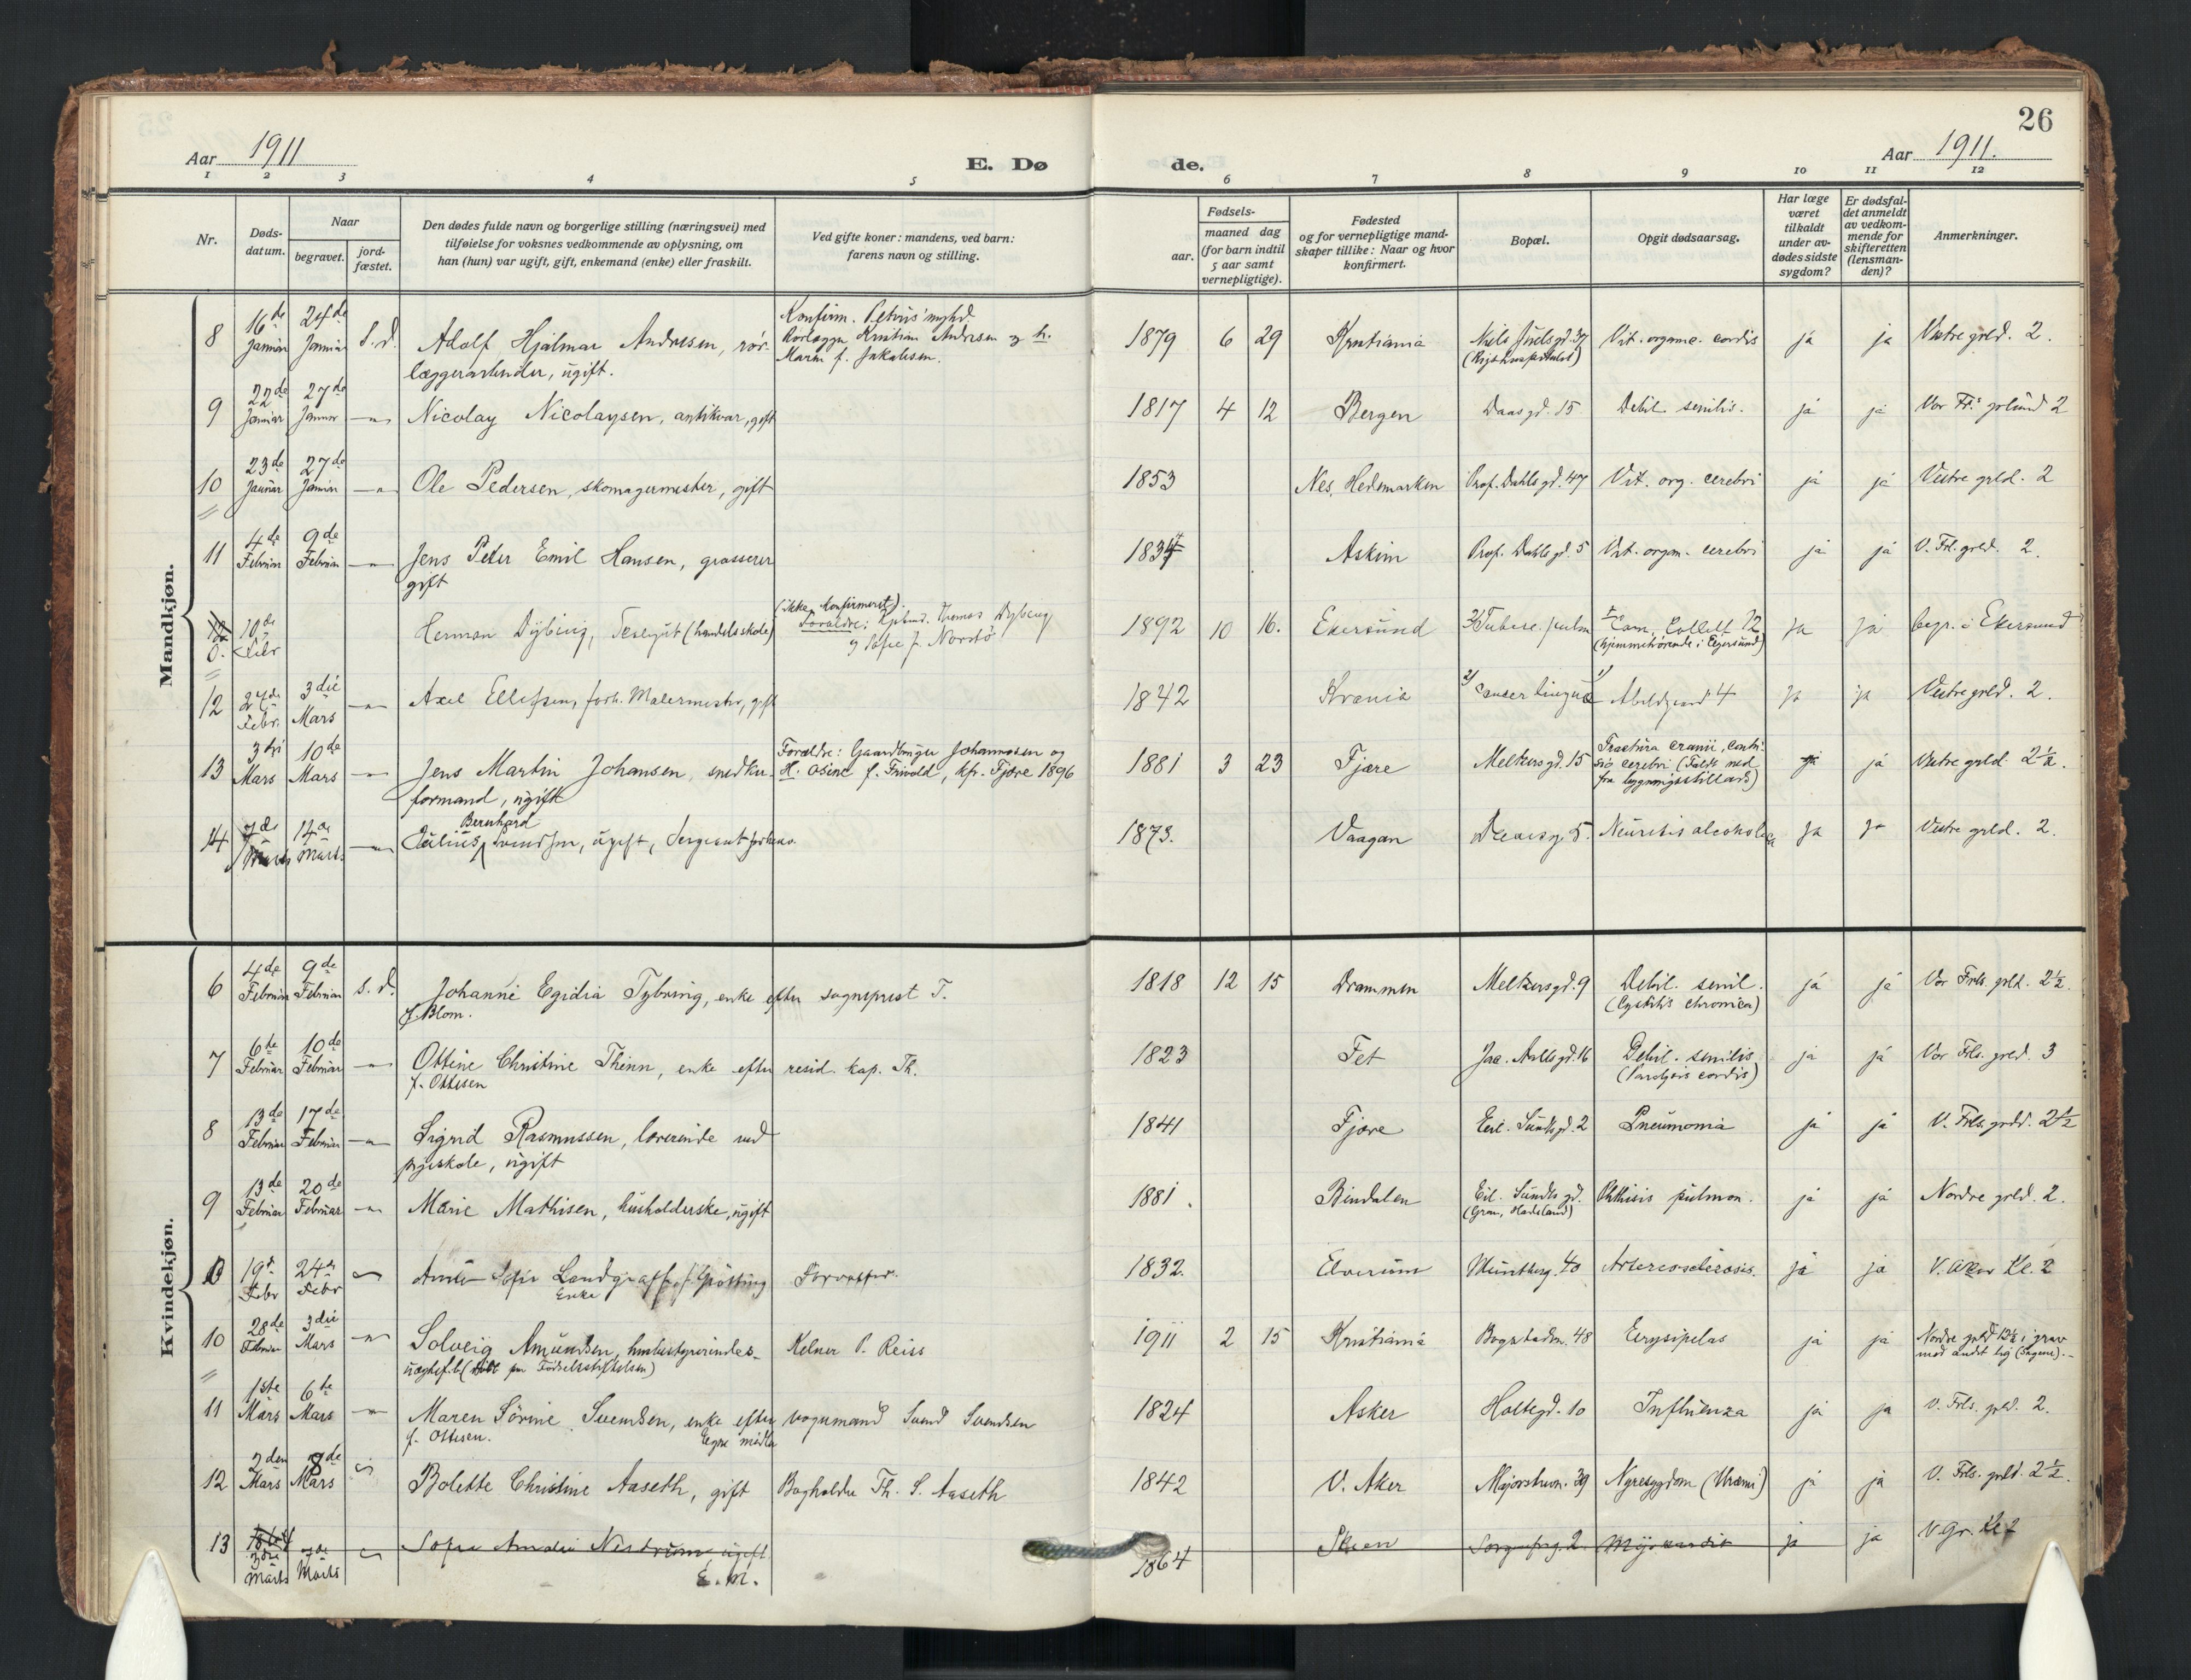 26
Aar 1911
E. Dø de.
Aar 1911.
1 2 3 4 5 6 7 8 9 10 11 12
Nr.
Døds-
datum.
Naar
begravet.
jord-
fæstet.
Den dødes fulde navn og borgerlige stilling (næringsvei) med
tilføielse for voksnes vedkommende av oplysning, om
han (hun) var ugift, gift, enkemand (enke) eller fraskilt.
Ved gifte koner: mandens, ved barn:
farens navn og stilling.
Fødsels-
aar.
maaned dag
(for barn indtil
5 aar samt
vernepligtige).
Fødested
og for vernepligtige mand-
skaper tillike: Naar og hvor
konfirmert.
Bopæl.
Opgit dødsaarsag.
Har læge
været
tilkaldt
under av-
dødes sidste
sygdom?
Er dødsfal-
det anmeldt
av vedkom-
mende for
skifteretten
(lensman-
den)?
Anmerkninger.
Mandkjøn.
8 16de Januar 24de Januar S. d. Adolf Hjalmar Andresen, rør-
læggerarbeider, ugift.
Rørlægger Kristian Andresen og h.
Maren f. Jakobsen.
1879 6 29 Kristiania Niels Juels gd. 37
(Rigshospitalet)
Vit. organic. cordis ja ja Vestre grld. 2.
9 22de Januar 27de Januar Nicolay Nicolaysen, antikvar, gift 1817 4 12 Bergen Daas gd. 15 Debil. senilis. ja ja Vor Frs grlund 2
10 23de Januar 27de Januar Ole Pedersen, skomagermester, gift 1853 Nes, Hedemarken Prof. Dahls gd. 47 Vit. org. cerebri ja ja Vestre grld. 2
11 4de Februar 9de Februar Jens Peter Emil Hansen, grosserer
gift
1834 Askim Prof. Dahls gd. 5 Vit. organ. cerebri ja ja V. Frl. grld. 2.
10de Febr Herman Dybing, (handelsskole)
(ikke konfirmeret).
Forældre: Thomas Dybing
1892 10 16. Ekersund Tuberc. pulm Cam. Collett 12
(hjemmehørende i Egersund)
ja ja begr. i Ekersund
12 27de Febr. 3die Mars Axel Ellefsen, forh. Malermester, gift 1842 Krania Cancer linguæ 4 ja ja Vestre grld. 2.
13 3die Mars 10de Mars Jens Martin Johansen, snedker-
formand, ugift
Forældre: Gaardbruger Johannesen og
H. Osine f. Frivold, kfr. Fjære 1896
1881 3 23 Fjære Melkers gd. 15 Fractura cranii, contu-
sio cerebri (Faldt ned
fra bygningsstillads)
ja ja Vestre grld. 2½.
14 7de Marts 14de Marts Bernhard
Julius Svendsen, ugift, Sergeant
1873. Vaagan 5. Neuritis alcoholica ja ja Vestre grld. 2.
Kvindekjøn.
6 4de Februar 9de Februar S. d. Johanne Egidia Tybring, enke efter sogneprest T.
f. Blom.
1818 12 15 Drammen Melkersgd. 9 Debil. senil.
(Cystitis chronica)
ja ja Vor Frels. grld. 2½.
7 6te Februar 10de Februar Ottine Christine Thinn, enke efter resid. kap. Th.
f. Ottesen
1823 Fet Jac. Aalls gd. 16 Debil. senilis
(Paralysis cordis)
ja ja Vor Frls. grld. 3
8 13de Februar 17de Februar Sigrid Rasmussen, lærerinde ved
pigeskole, ugift
1841 Fjære Eil. Sundts gd. 2 Pneumonia ja ja V. Frls. grld. 2½
9 13de Februar 20de Februar Marie Mathisen, husholderske, ugift 1881. Bindalen Eil. Sundts gd.
(Gran, Hadeland)
Phthisis pulmon. ja ja Nordre grld. 2.
19de Febr 24de Febr Sofie Landgraff f. Grøtting
Enke
Forvalter.
1832. Elverum Munthesg. 40 Arteriosclerosis. ja ja V. Aker Kl. 2
10 28de Februar 3die Mars Solveig Amundsen, husbestyrerindes
Kelner P. Reiss
1911 2 15 Kristiania Bogstadvn. 48 Erysipelas ja ja Nordre grld 12½ i grav
med andet lig (Sagene).
11 1ste Mars 6te Mars Maren Sørine Svendsen, enke efter vognmand Svend Svendsen
f. Ottesen. Egne midler
1824 Asker Holtegd. 10 Influenza ja ja V. Frls. grld. 2.
12 2den Mars 8de Mars Bolette Christine Aaseth, gift Bogholder Th. S. Aaseth 1842 V. Aker Majorstuvn. 39 Nyresygdom (Uræmi) ja ja V. Frls. grld. 2½.
13 3die Marts Marts Sofie Amalie Nerdrum, ugift.
E. M.
1864 Skien Sorgenfrig. 2 Myocardit ja ja V. Gr. Kl 2